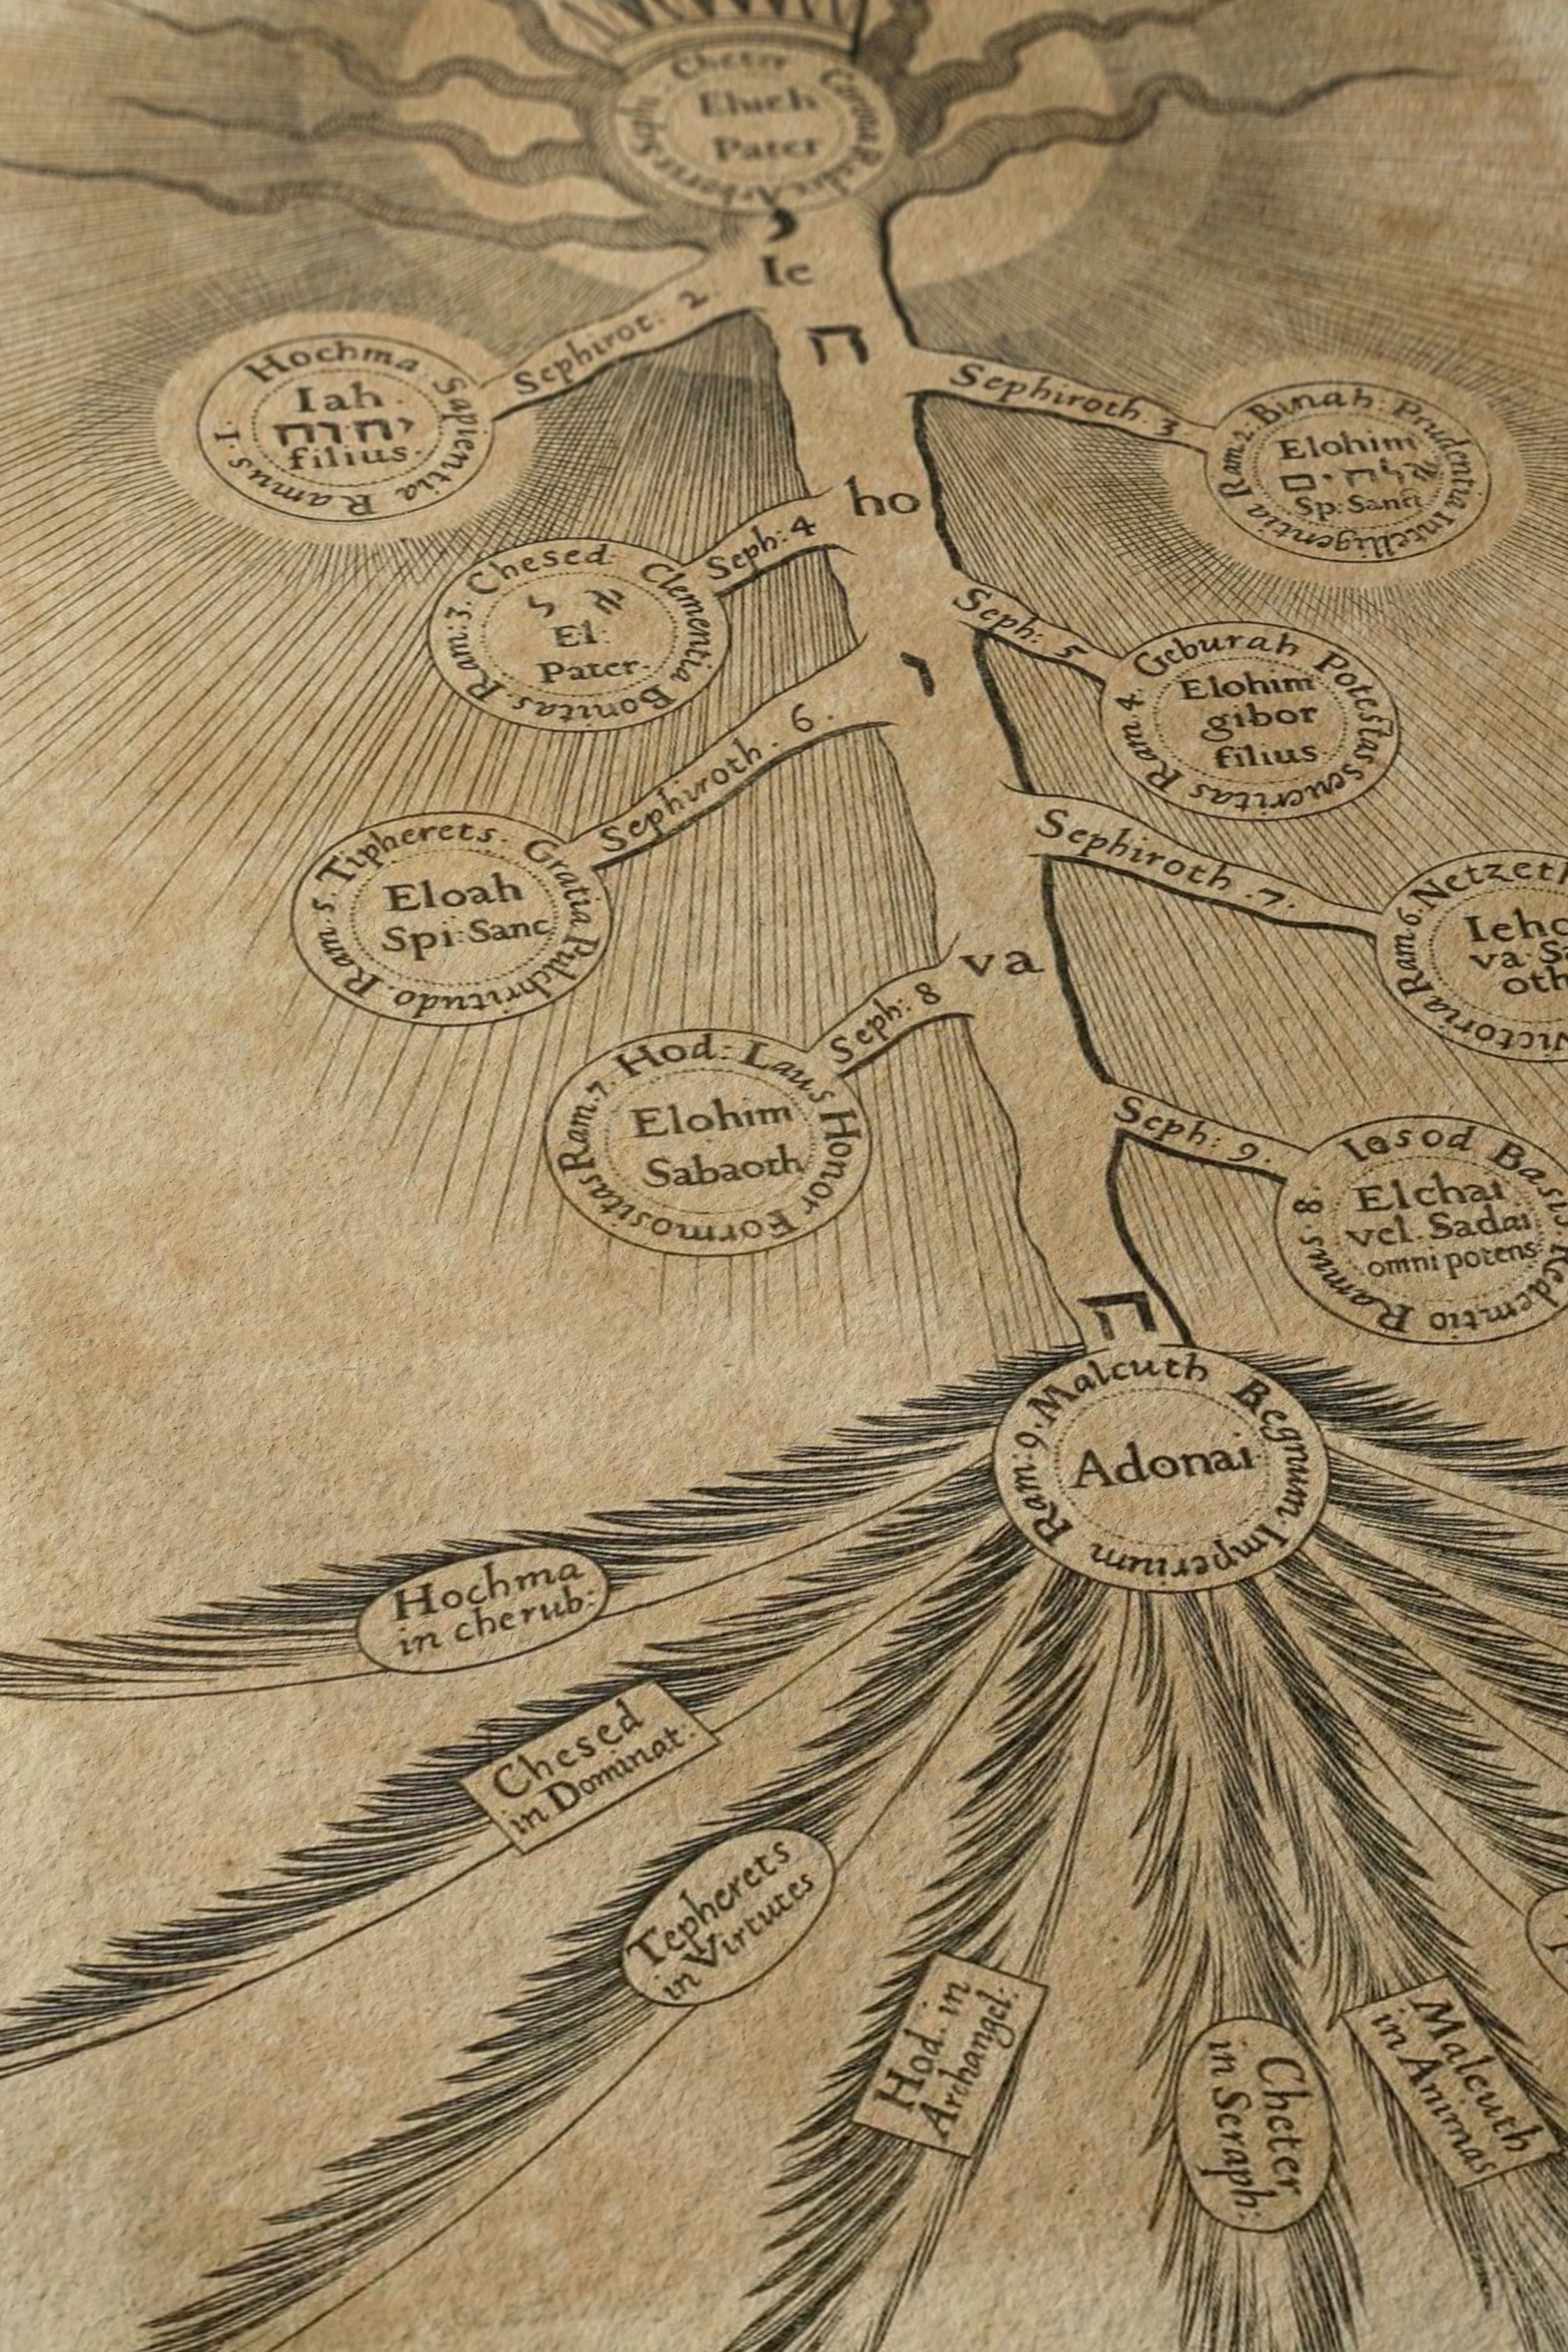 Cheter Corona Radix Arboris Seph:
Eheieh
Pater
י
Ie
ה
Sephirot: 2.
Sephiroth. 3
Hochma Sapientia Ramus. 1.
Iah.
יהוה
filius.
Ram: 2. Binah: Prudentia Intelligentia
Elohim
אלהים
Sp: Sanct
ho
Seph: 4
Ram: 3. Chesed: Clementia Bonitas
אל
El:
Pater.
Seph: 5
Ram: 4. Geburah Potestas severitas
Elohim
gibor
filius.
ו
Sephiroth. 6.
Ram. 5. Tipherets. Gratia Pulchritudo
Eloah
Spi: Sanc
Sephiroth. 7.
Ram 6. Netzeth Victoria
Ieho
va. Sa
oth
va
Seph: 8
Ram. 7. Hod: Laus Honor Formositas
Elohim
Sabaoth
Seph: 9.
Iesod Basis. Redemtio Ramus. 8.
Elchai
vel. Sadai
omnipotens
ה
Ram: 9. Malcuth Regnum Imperium
Adonai
Hochma
in cherub:
Chesed
in Dominat:
Tepherets
in Virtutes
Hod. in
Archangel:
Cheter
in Seraph:
Malcuth
in Animas